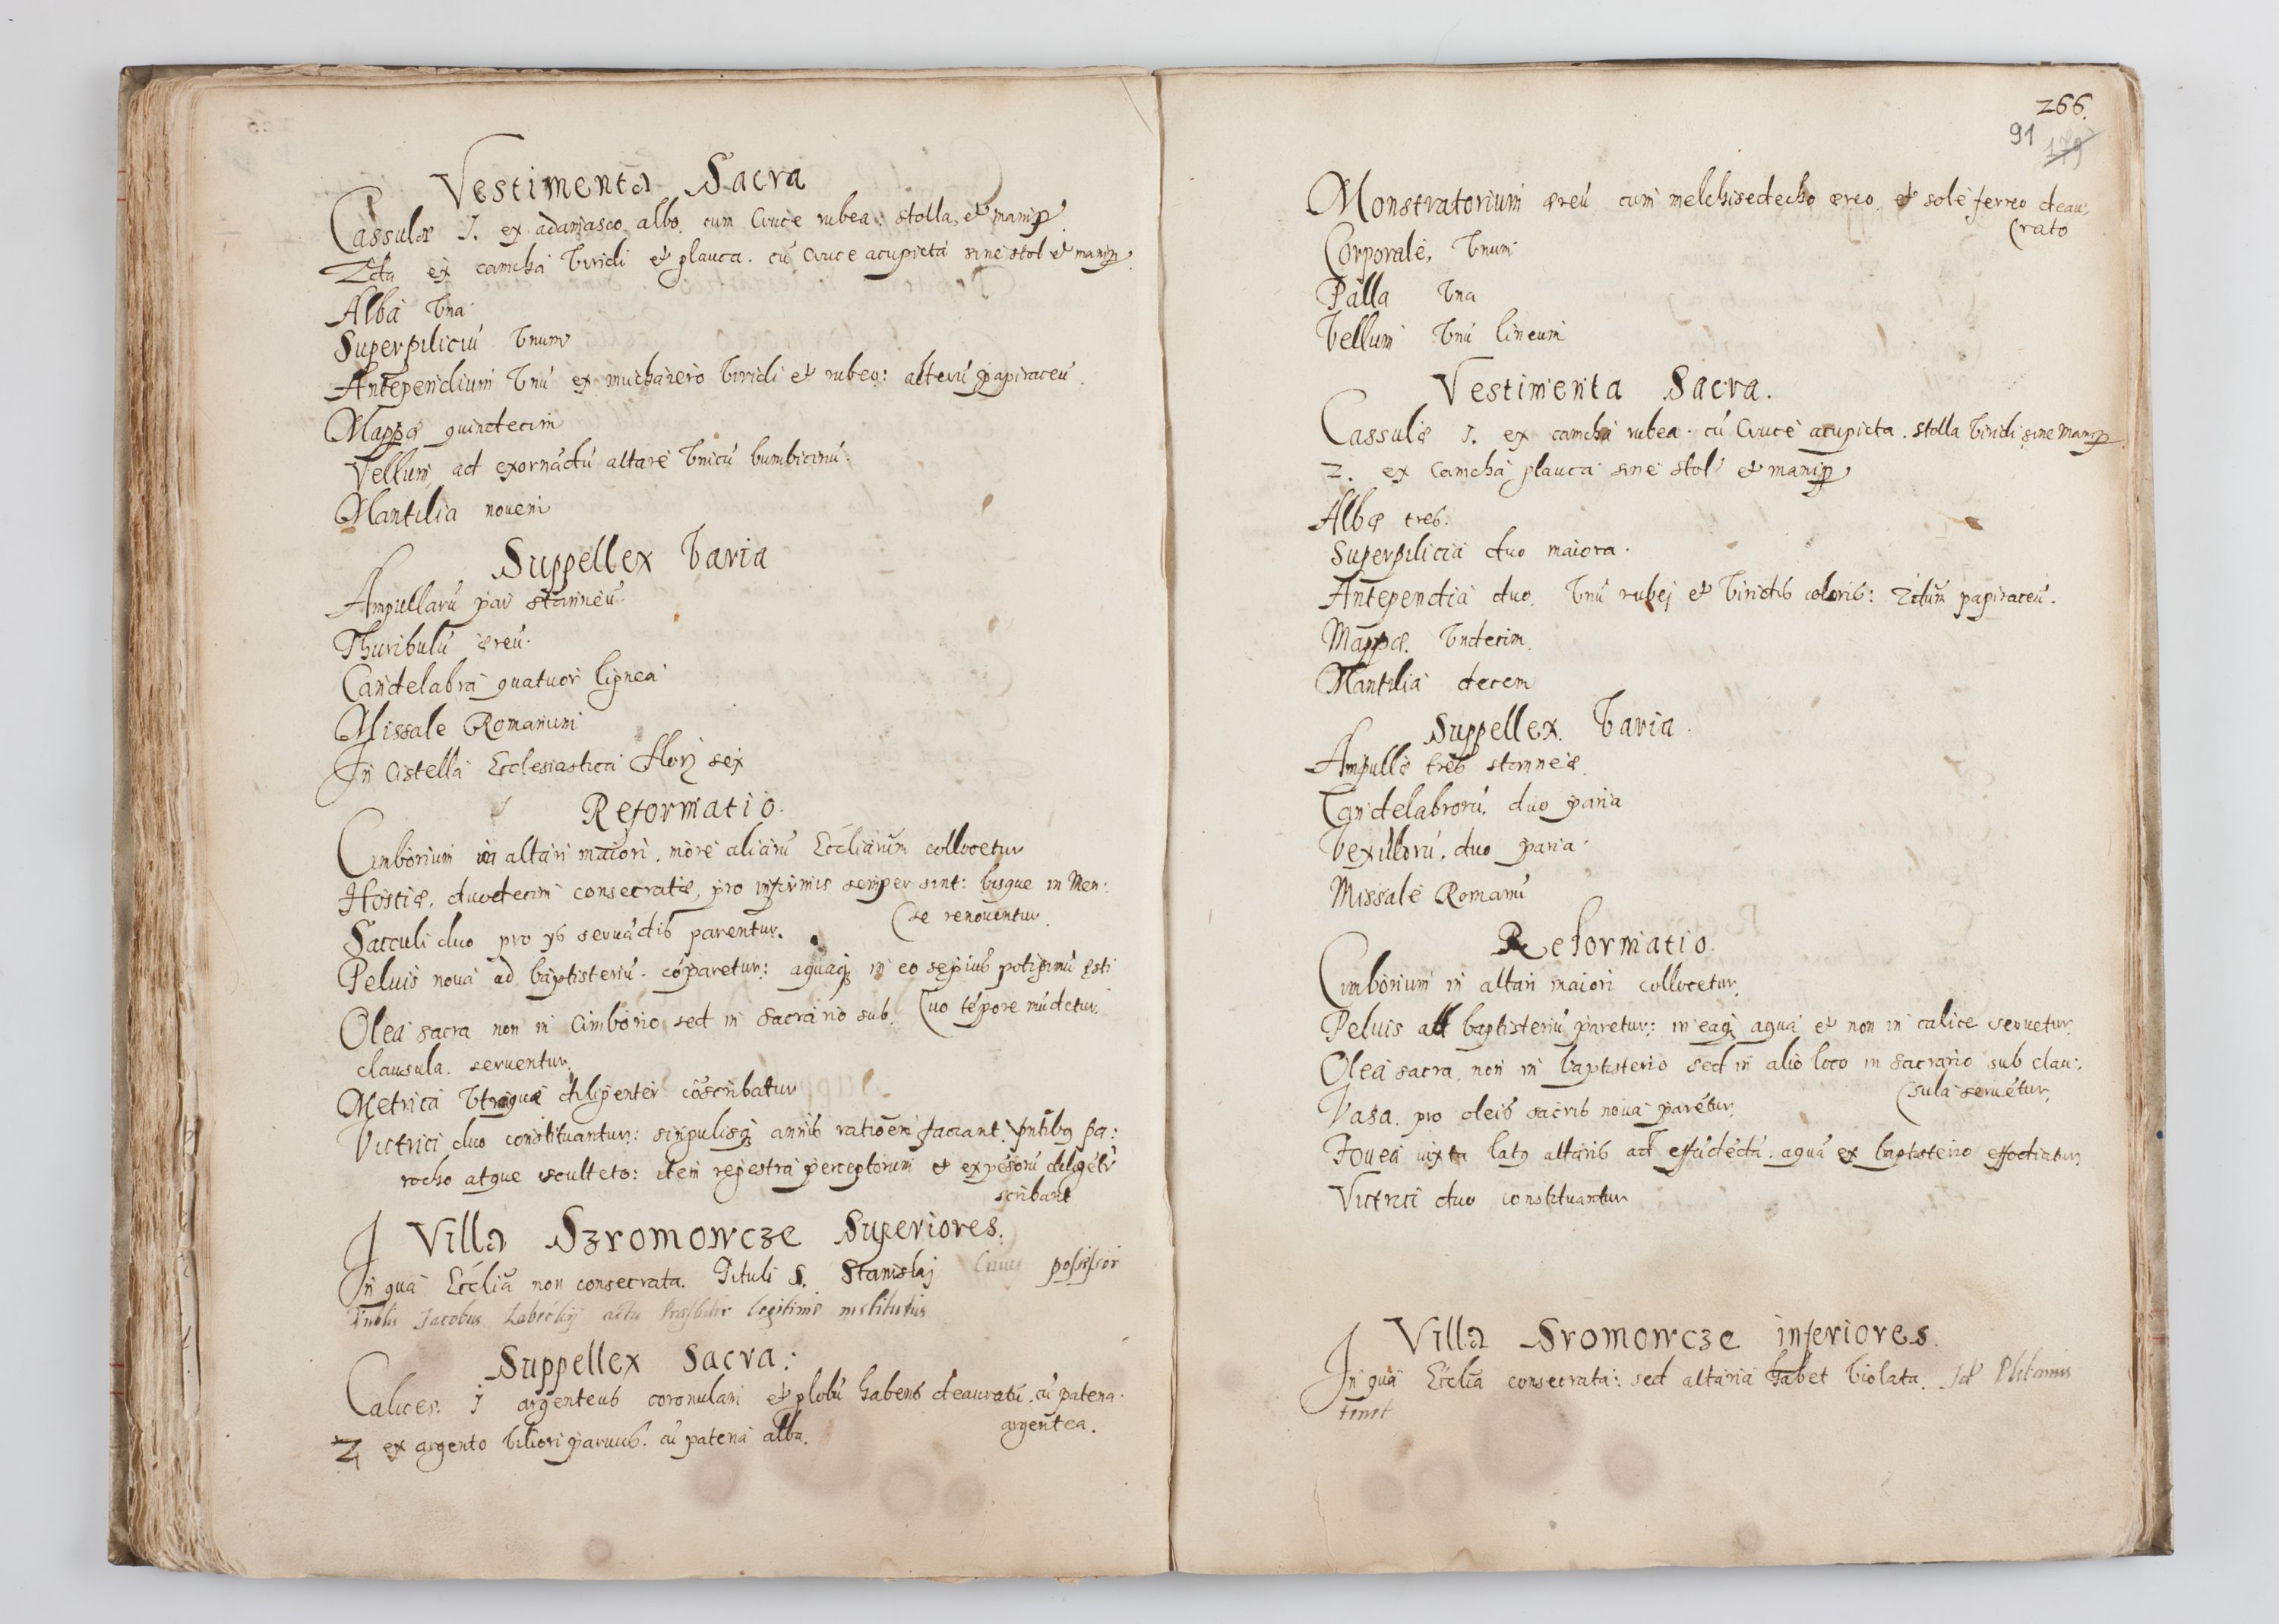 Vestimenta Sacra
Cassulæ 1. ex adamasco albo. cum Cruce rubea. stolla, et manip.
2da ex camcha viridi et glauca. cũ Cruce acupicta sine stol et manip.
Alba vna
Superpiliciũ vnum
Antependium vnũ ex muchaiero viridi et rubeo: alterũ papiraceũ.
Mappæ quindecim
Vellum ad exornãdũ altare vnicũ bumbicinũ.
Mantilia novem
Suppellex varia
Ampullarũ par stanneũ.
Thuribulũ æreũ.
Candelabra quatuor lignea
Missale Romanum
In Cistella Ecclesiastica flor sex
Reformatio.
Cimborium in altari maiori. more aliarũ Eccliarum collocetur
Hostiæ, duodecim consecratæ, pro infirmis semper sint: bisque in Men:
(se renouentur.
Sacculi duo pro ys seruãdis parentur.
Peluis noua ad baptisteriũ. cõparetur: aquaq in eo sepius potissimũ esti
(uo tẽpore mũdetur.
Olea sacra non in Cimborio sed in Sacrario sub
clausula. seruentur.
Metrica vtraque diligenter cõscribatur
Victrici duo constituantur: singulisq annis ratiõem faciant. pñtibus pa:
rocho atque sculteto: item regestra perceptorum et expẽsorũ diligẽtr
scribant
Villa Szromowcze Superiores.
In qua Ecclia non consecrata. Tituli S. Stanislaj Cuius possessor
Jacobus actu legitime institutus
Suppellex Sacra:
Calices. 1 argenteus coronulam et globũ habens deauratũ. cũ patena
argentea.
2 ex argento viliori paruus. cũ patena alba.
266.
91 179
Monstratorium æreũ cum melchisedecho æreo et sole ferreo deau:
(rato
Corporale, vnum
Palla vna
Vellum vnũ lineum
Vestimenta Sacra.
Cassulæ 1. ex camcha rubea. cũ Cruce acupicta. stolla viridi sine Manip.
2. ex Camcha glauca sine stol et manip
Albæ tres.
Superpilicia duo maiora.
Antependia duo. vnũ rubej et viridis coloris: 2dum papiraceũ.
Mappæ. vndecim.
Mantilia decem
Suppellex varia.
Ampullæ tres stanneæ.
Candelabrorũ, duo paria
Vexillorũ, duo paria.
Missale Romanũ
Reformatio.
Cimborium in altari maiori collocetur.
Peluis ad baptisteriũ paretur: in eaq aqua et non in calice seruetur.
Olea sacra, non in baptisterio sed in alio loco in Sacrario sub clau:
(sula seruẽtur.
Vasa. pro oleis sacris noua parẽtur.
Fouea iuxta latus altaris ad effũdẽdã. aquã ex baptisterio effodiatur.
Victrici duo constituantur
Villa Sromowcze inferiores.
In qua Ecclia consecrata: sed altaria habet violata. Id
tenet